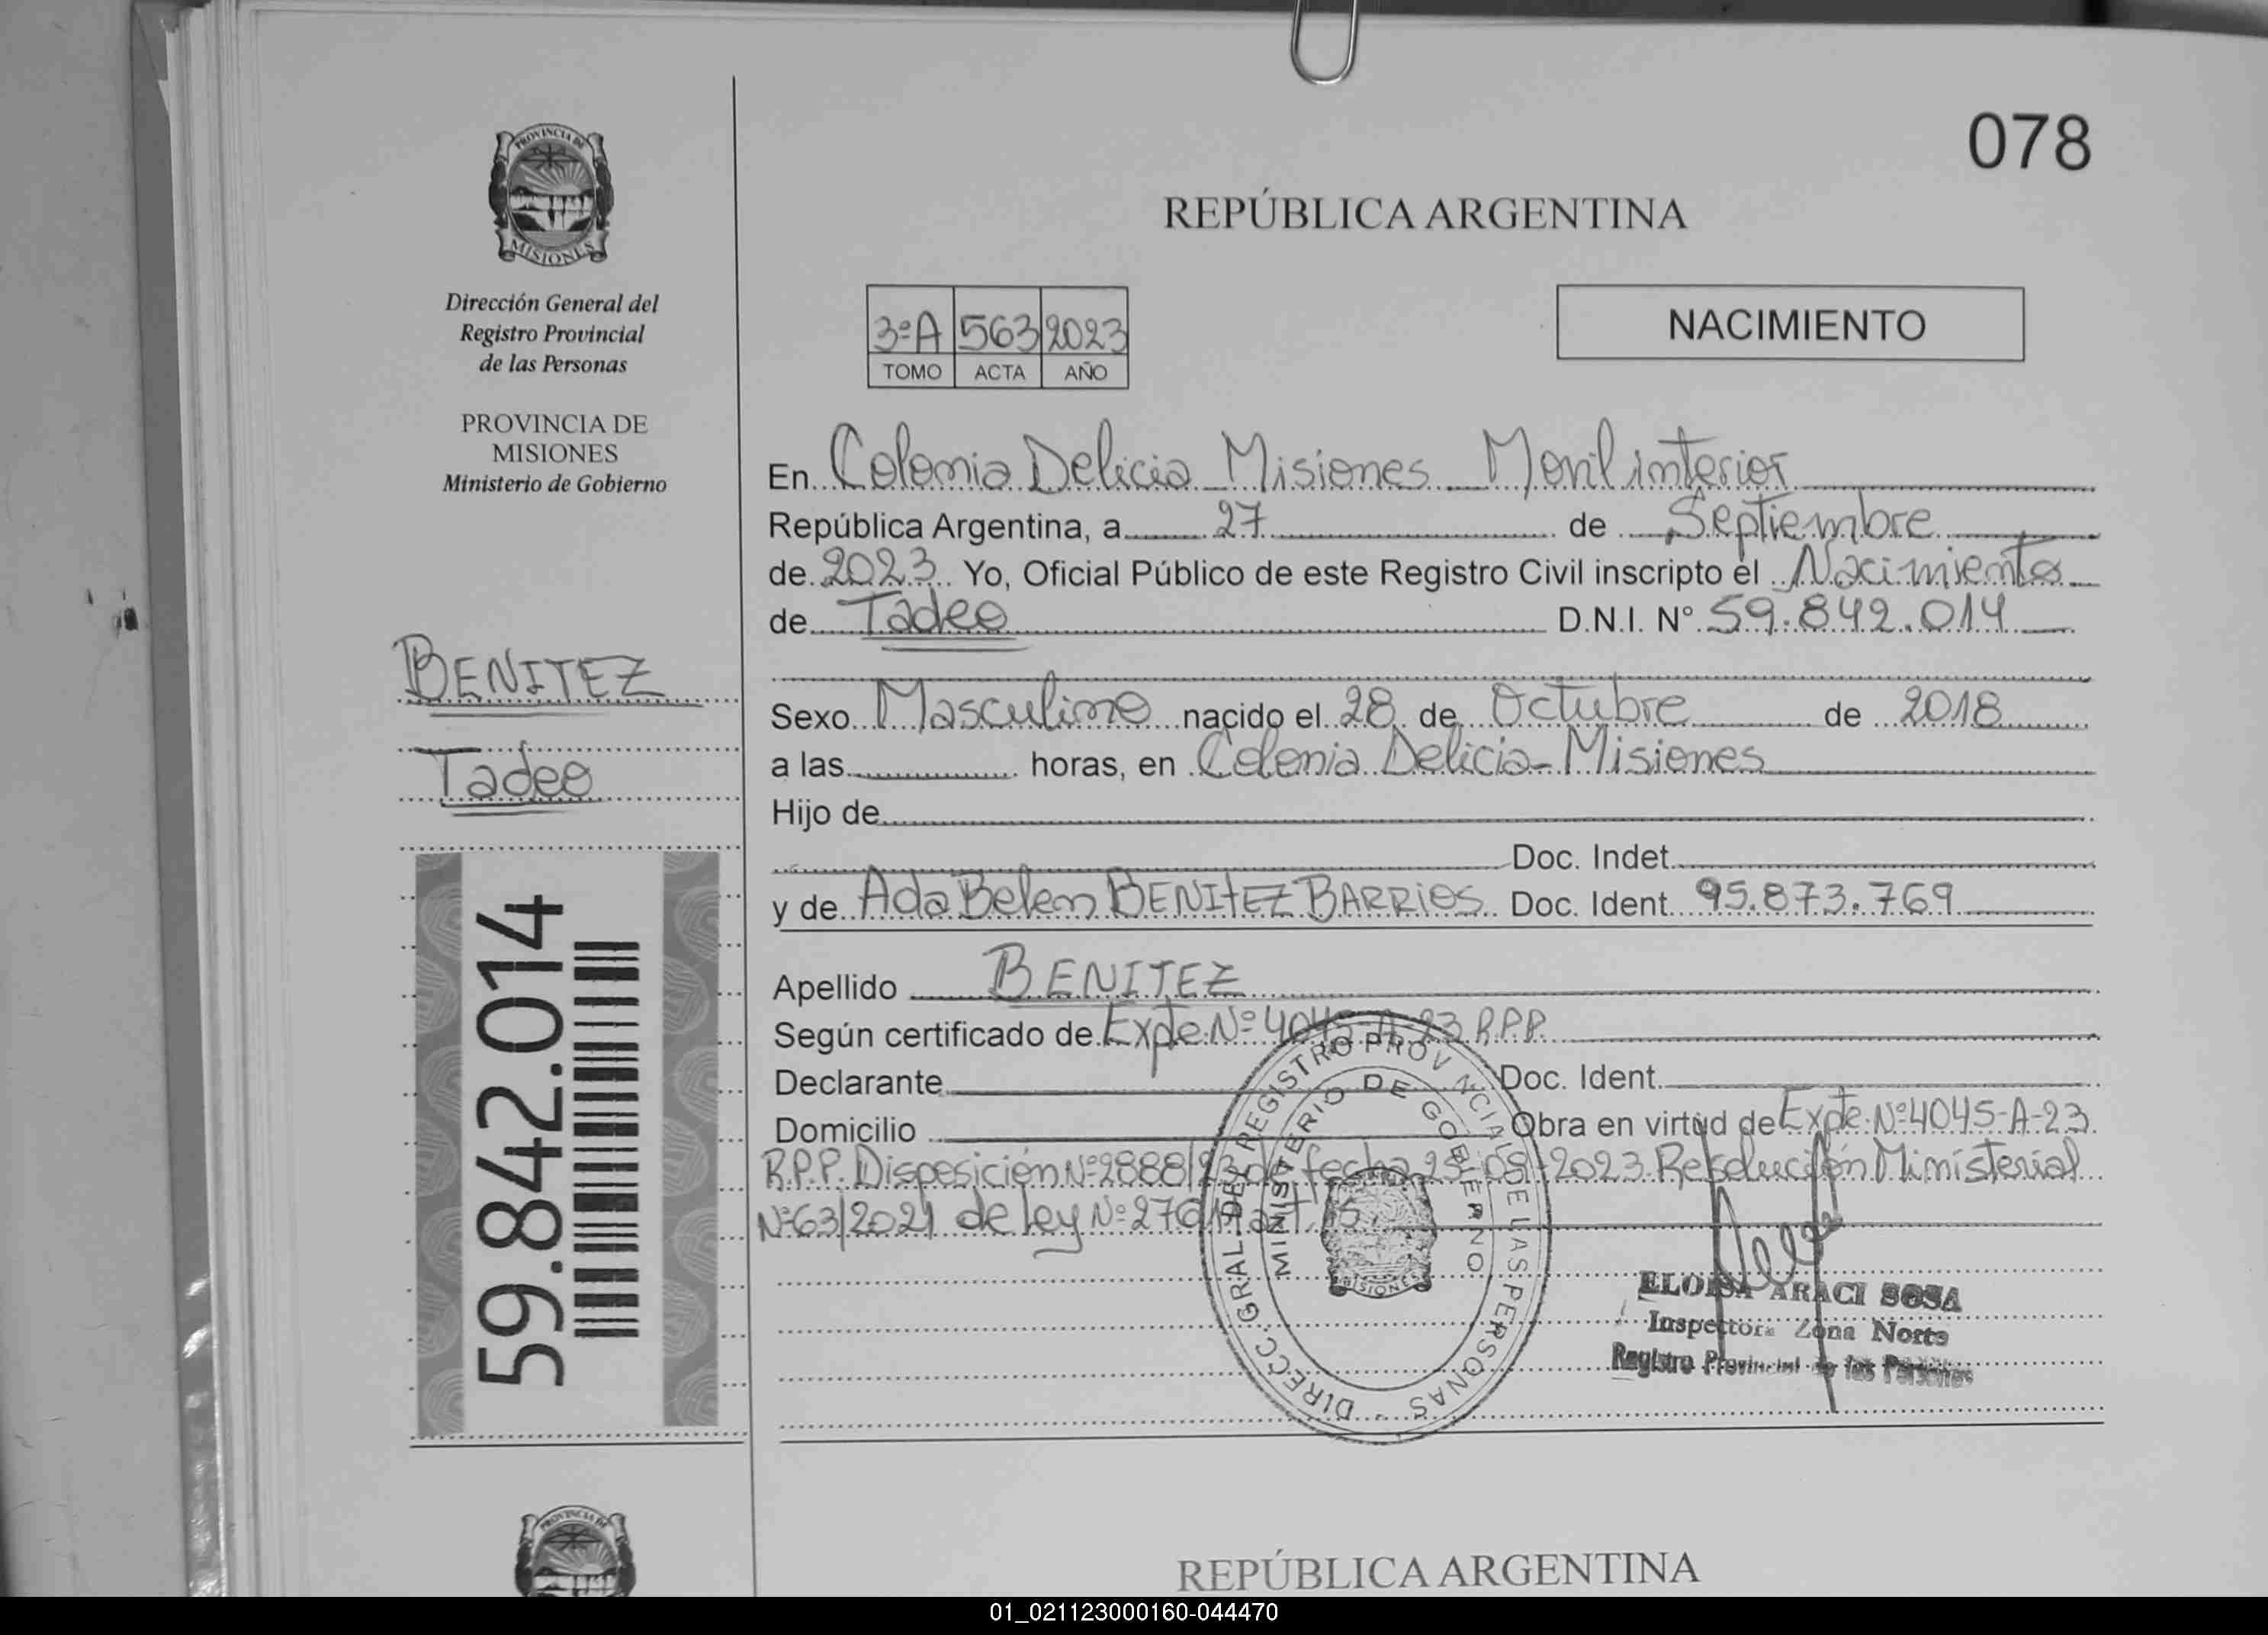 PROVINCIA DE
MISIONES
Dirección General del
Registro Provincial
de las Personas
PROVINCIA DE
MISIONES
Ministerio de Gobierno
BENITEZ
Tadeo
59.842.014
078
REPÚBLICA ARGENTINA
3ºA 563 2023
TOMO ACTA AÑO
NACIMIENTO
En Colonia Delicia Misiones Movil interior
República Argentina, a 27 de Septiembre
de 2023 Yo, Oficial Público de este Registro Civil inscripto el Nacimiento
de Tadeo D.N.I. Nº 59.842.014
Sexo Masculino nacido el 28 de Octubre de 2018
a las horas, en Colonia Delicia-Misiones
Hijo de
Doc. Indet.
y de Ada Belen BENITEZ BARRIOS Doc. Ident. 95.873.769
Apellido BENITEZ
Según certificado de Expte Nº 4045-A-23 R.P.P.
Declarante Doc. Ident.
Domicilio Obra en virtud de Expte. Nº 4045-A-23
R.P.P. Disposición Nº 2888/23 de fecha 25-09-2023. Resolución Ministerial
Nº 63/2021 de ley Nº
DIRECC. GRAL. DEL REGISTRO PROVINCIAL DE LAS PERSONAS
MINISTERIO DE GOBIERNO
MISIONES
ELOISA ARACI SOSA
Inspectora Zona Norte
Registro Provincial de las Personas
PROVINCIA DE
REPÚBLICA ARGENTINA
01_021123000160-044470